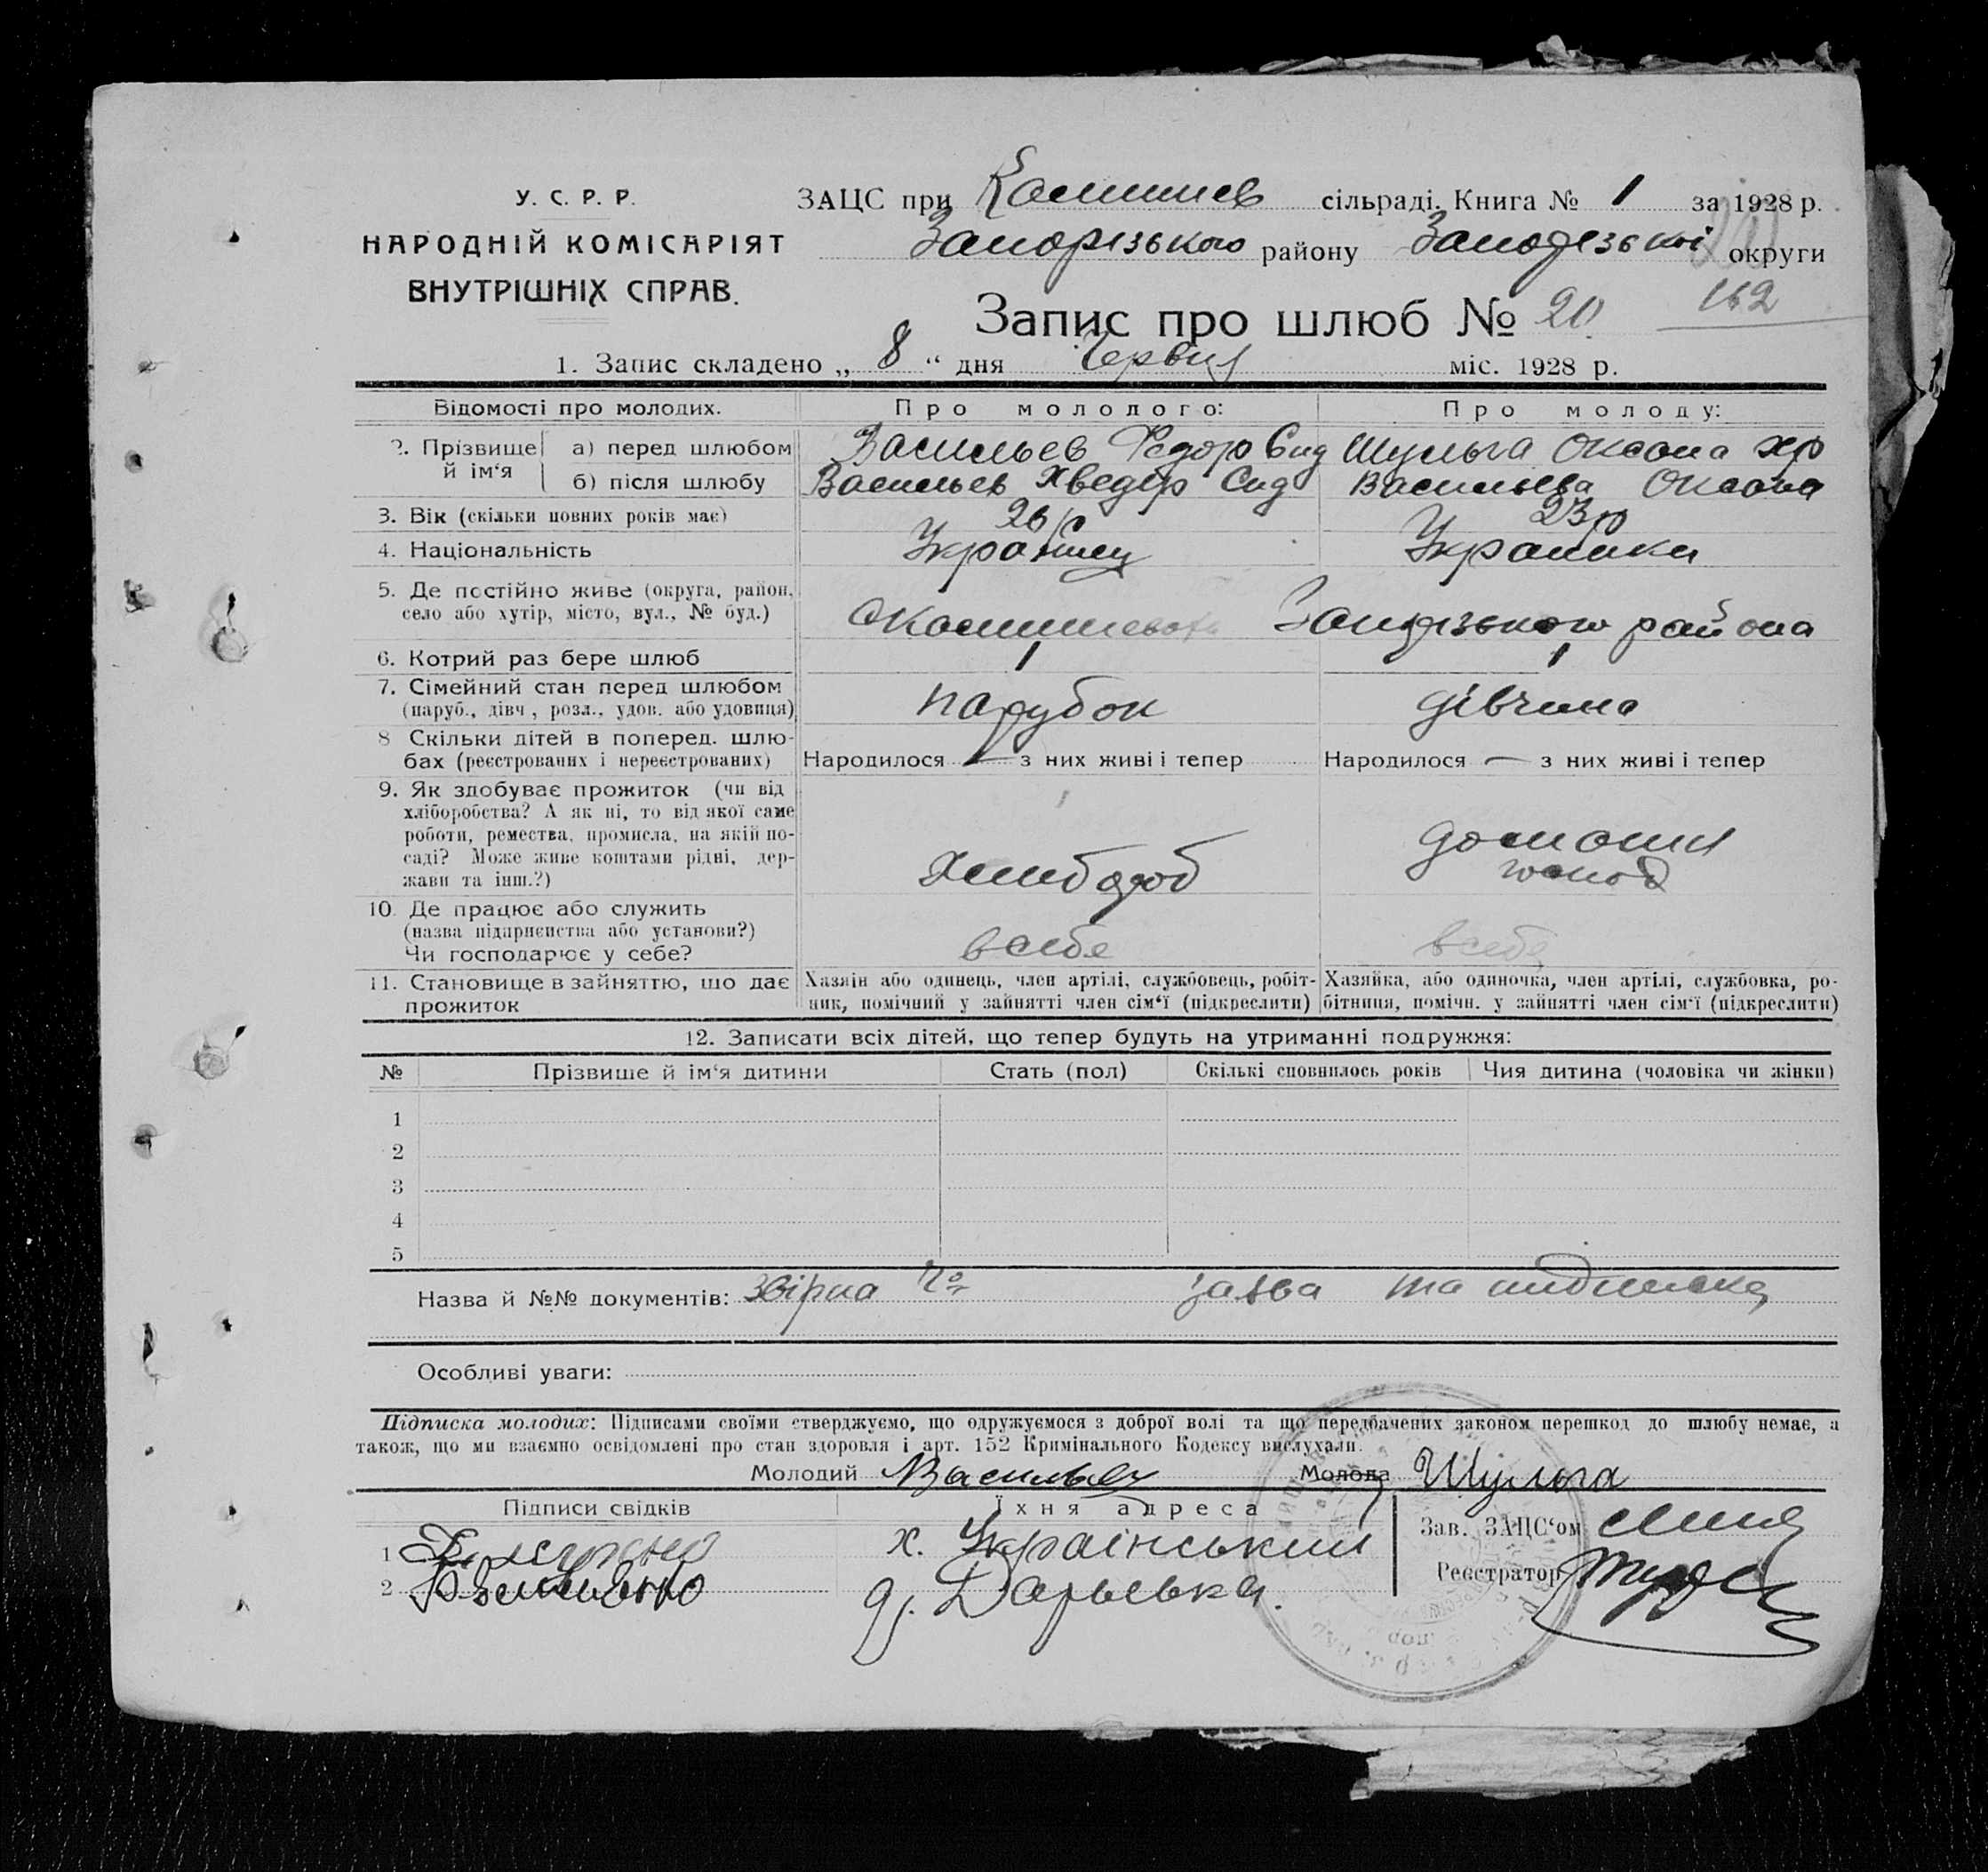 У. С. Р. Р.
НАРОДНІЙ КОМІСАРІЯТ
ВНУТРІШНІХ СПРАВ.
ЗАЦС при Камишев сільраді. Книга № 1 за 1928 р.
Запорізького району Запорізької округи
Запис про шлюб № 20
162
1. Запис складено „ 8 “ дня Червня міс. 1928 р.
Відомості про молодих. Про молодого: Про молоду:
2. Прізвище й ім‘я а) перед шлюбом Васильев Федор Сид Шульга Оксана Хр
б) після шлюбу Васильев Хведір Сид Васильева Оксана
3. Вік (скільки повних років має) 26 р 23 р
4. Національність Украінец Украинка
5. Де постійно живе (округа, район,
село або хутір, місто, вул., № буд.) Запорізького района
6. Котрий раз бере шлюб 1 1
7. Сімейний стан перед шлюбом
(паруб., дівч., розл., удов. або удовиця) парубок дівчина
8 Скільки дітей в поперед. шлю-
бах (реєстрованих і нереєстрованих) Народилося — з них живі і тепер Народилося — з них живі і тепер
9. Як здобуває прожиток (чи від
хліборобства? А як ні, то від якої саме
роботи, ремества, промисла, на якій по-
саді? Може живе коштами рідні, дер-
жави та інш.?) Хлибороб домашня господ
10. Де працює або служить
(назва підприємства або установи?)
Чи господарює у себе? в себе в себе
11. Становище в зайняттю, що дає
прожиток
Хазяїн або одинець, член артілі, службовець, робіт-
ник, помічний у зайнятті член сім‘ї (підкреслити)
Хазяйка, або одиночка, член артілі, службовка, ро-
бітниця, помічн. у зайнятті член сім‘ї (підкреслити)
12. Записати всіх дітей, що тепер будуть на утриманні подружжя:
№ Прізвище й ім‘я дитини Стать (пол) Скількі сповнилось років Чия дитина (чоловіка чи жінки)
1
2
3
4
5
Назва й №№ документів: Звірна заява та підписка
Особливі уваги:
Підписка молодих: Підписами своїми стверджуємо, що одружуємося з доброї волі та що передбачених законом перешкод до шлюбу немає, а
також, що ми взаємно освідомлені про стан здоровля і арт. 152 Кримінального Кодексу вислухали.
Молодий Васильев Молода Шульга
Підписи свідків Їхня адреса
1 х. Украінський
2 д. Дарьевка.
Зав. ЗАЦС‘ом
Реєстратор